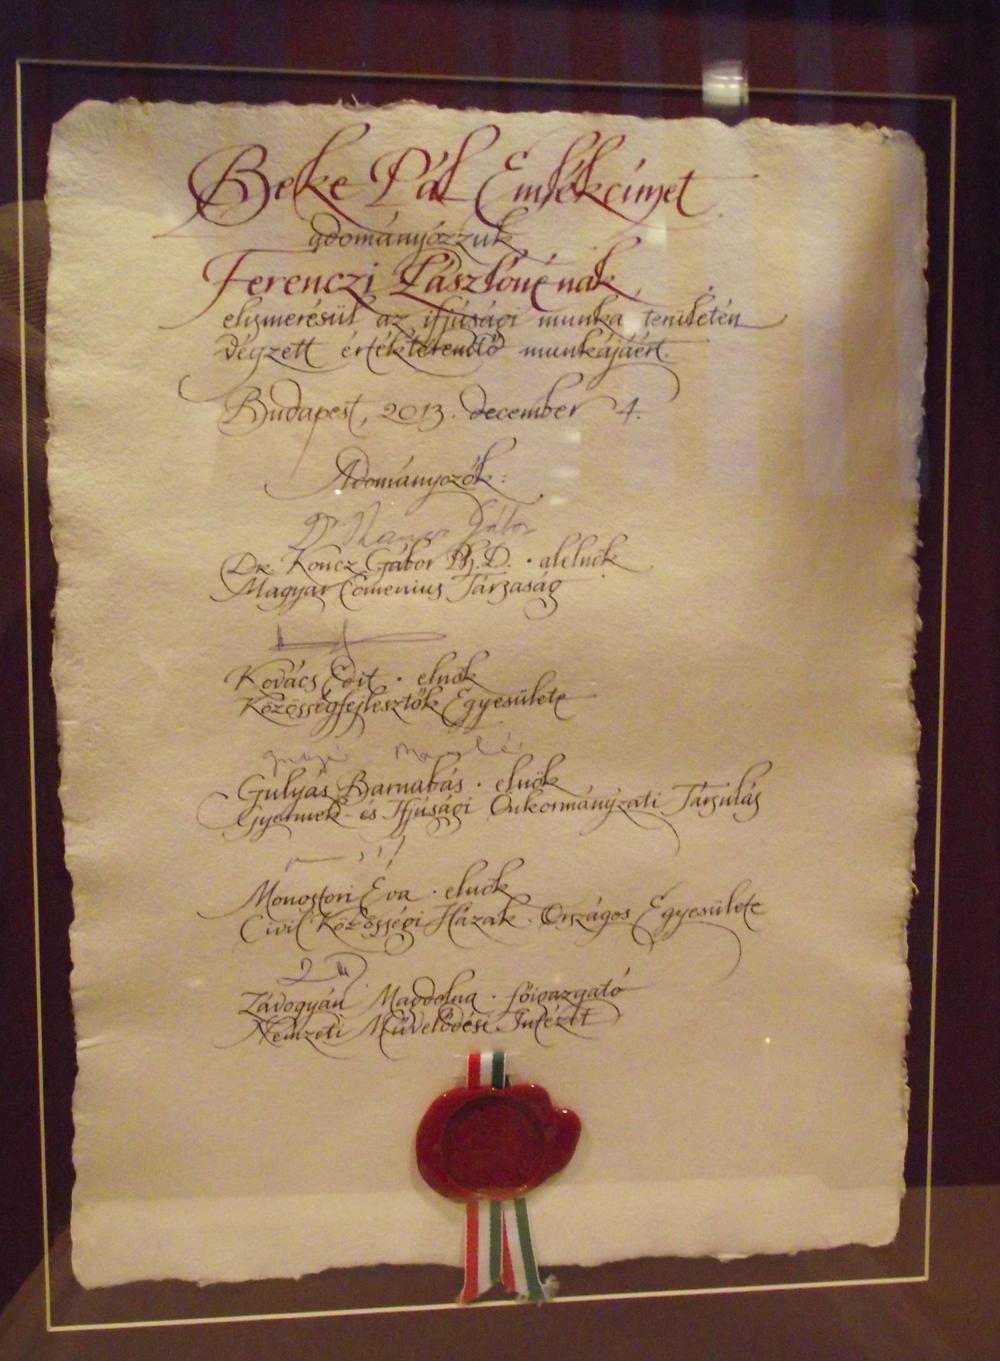 Beke Pál Emlékcímet
adományozzuk
Ferenczi Lászlónénak,
elismerésül az ifjúsági munka területén
végzett értékteremtő munkájáért.
Budapest, 2013. december 4.
Adományozók:
Dr. Koncz Gábor Ph.D. · alelnök
Magyar Comenius Társaság
Kovács Edit · elnök
Közösségfejlesztők Egyesülete
Gulyás Barnabás · elnök
Gyermek- és Ifjúsági Önkormányzati Társulás
Monostori Éva · elnök
Civil Közösségi Házak Országos Egyesülete
Závogyán Magdolna · főigazgató
Nemzeti Művelődési Intézet